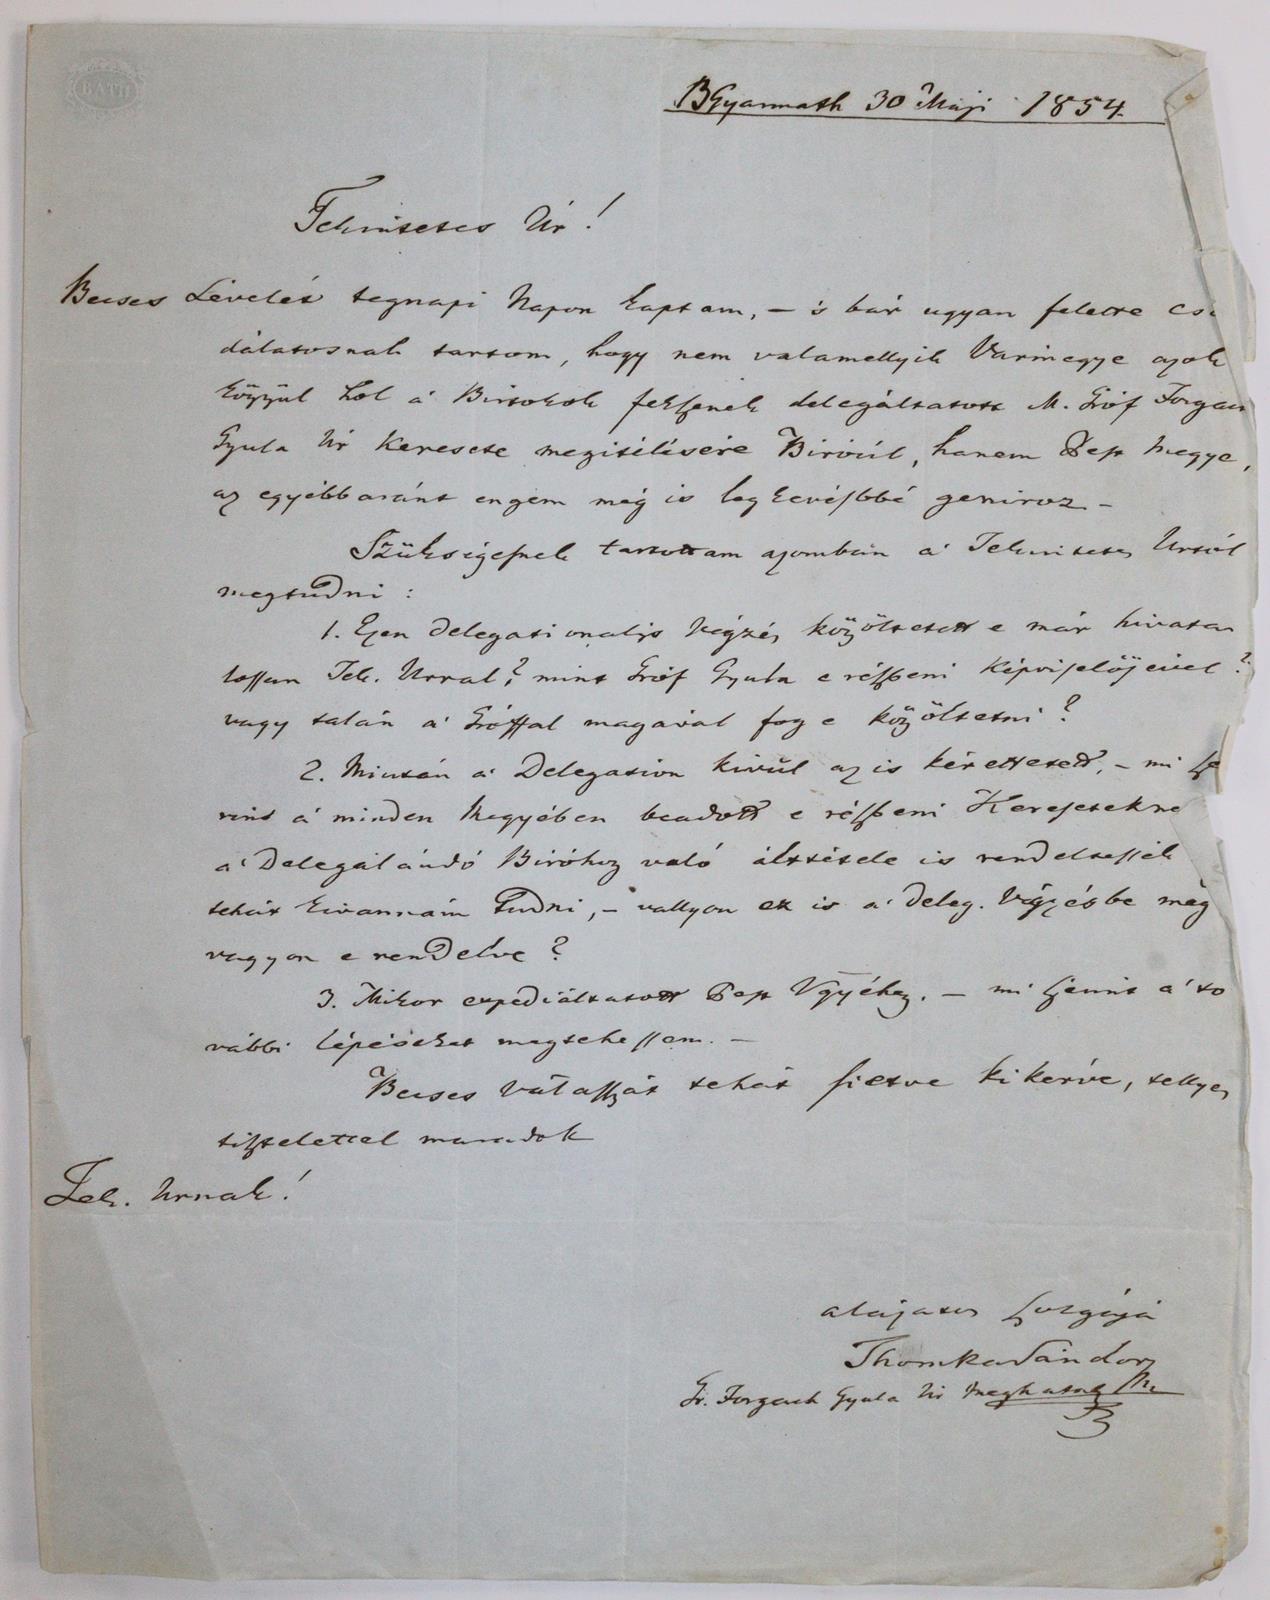 BATH
BGyarmath 30 Máji 1854.
Tekintetes Úr!
Becses Levelét tegnapi Napon kaptam, – 's bár ugyan felette cso
dálatosnak tartom, hogy nem valamellyik Varmegye azok
közzűl hol a' Birtokok fekszenek delegáltatott M. Gróf Forgách
Gyula Úr Keresete megitélésére Biróúl, hanem Pest Megye,
az egyébbaránt engem még is legkevésbbé geniroz –
Szükségesnek tartottam azomban a' Tekintetes Urtól
megtudni :
1. Ezen delegationalis Végzés közöltetett e már hivata
lossan Tek. Urral? mint Gróf Gyula e részbeni Képviselőjével?
vagy talán a' Gróffal magával fog e közöltetni?
2. Miután a' Delegation kivűl az is kérettetett, – mi sze
rint a' minden Megyében beadott e részbeni Keresetekne
a' Delegálandó Biróhoz való áttétele is rendeltessék
tehát kivánnám tudni, – vallyon ez is a' deleg. Végzésbe még
vagyon e rendelve?
3. Mikor expediáltatott Pest Vgyéhez. – mi szerint a' to
vábbi lépéseket megtehessem. –
Becses válasszát tehát sietve kikérve, tellyes
tisztelettel maradok
Tek. Urnak!
alázatos szolgája
Thomka Sándor
Gr. Forgach Gyula Úr meghatal